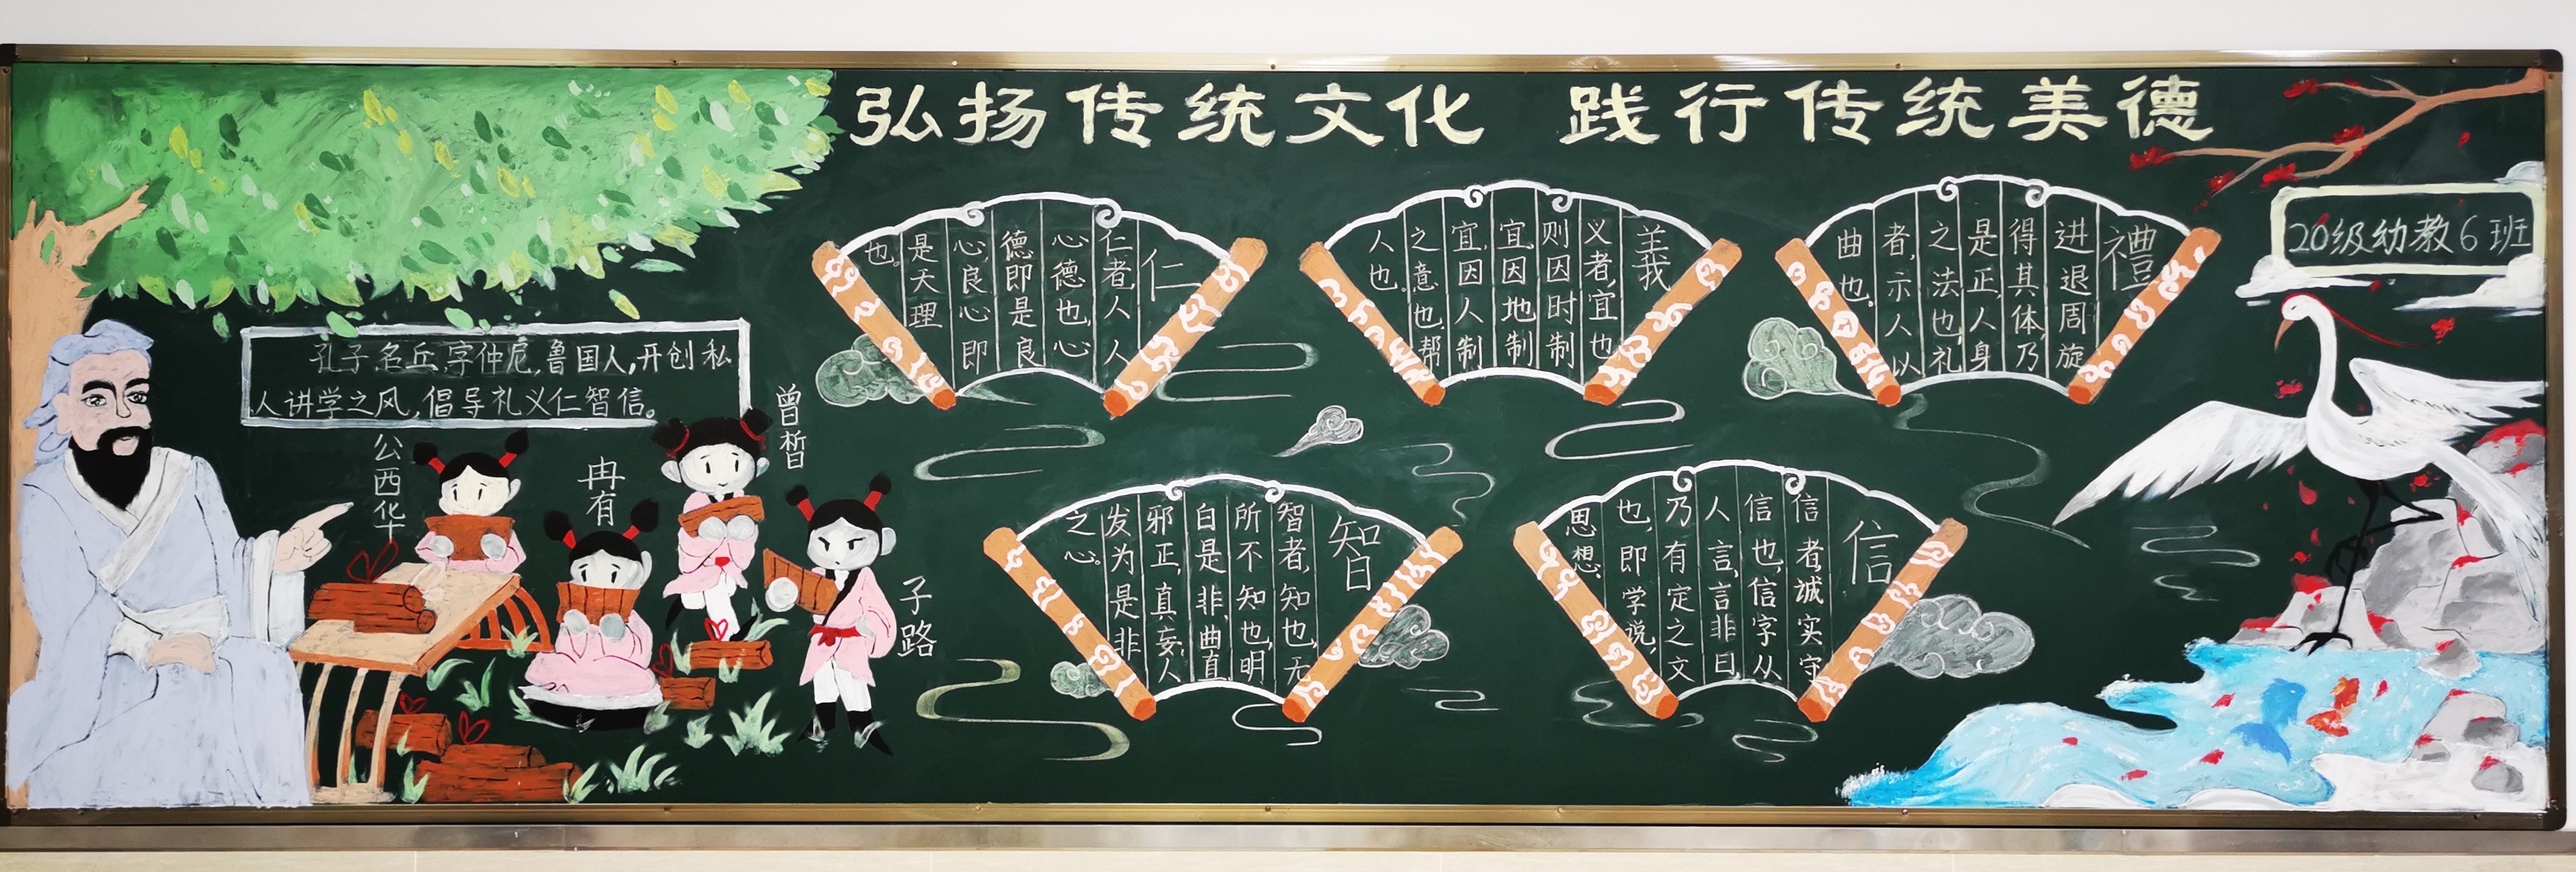 弘扬传统文化 践行传统美德
20级幼教6班
孔子,名丘,字仲尼,鲁国人,开创私
人讲学之风,倡导礼义仁智信。
公西华
冉有
曾皙
子路
仁
仁者,人人
心德也,心
德即是良
心,良心即
是天理
也。
義
义者,宜也
则因时制
宜,因地制
宜,因人制
之意也,帮
人也。
禮
进退周旋
得其体,乃
是正人身
之法也,礼
者,示人以
曲也。
知日
智者,知也,无
所不知也,明
白是非,曲直
邪正,真妄,人
发为是非
之心。
信
信者,诚实守
信也,信字从
人言,言非曰
乃有定之文
也,即学说,
思想。